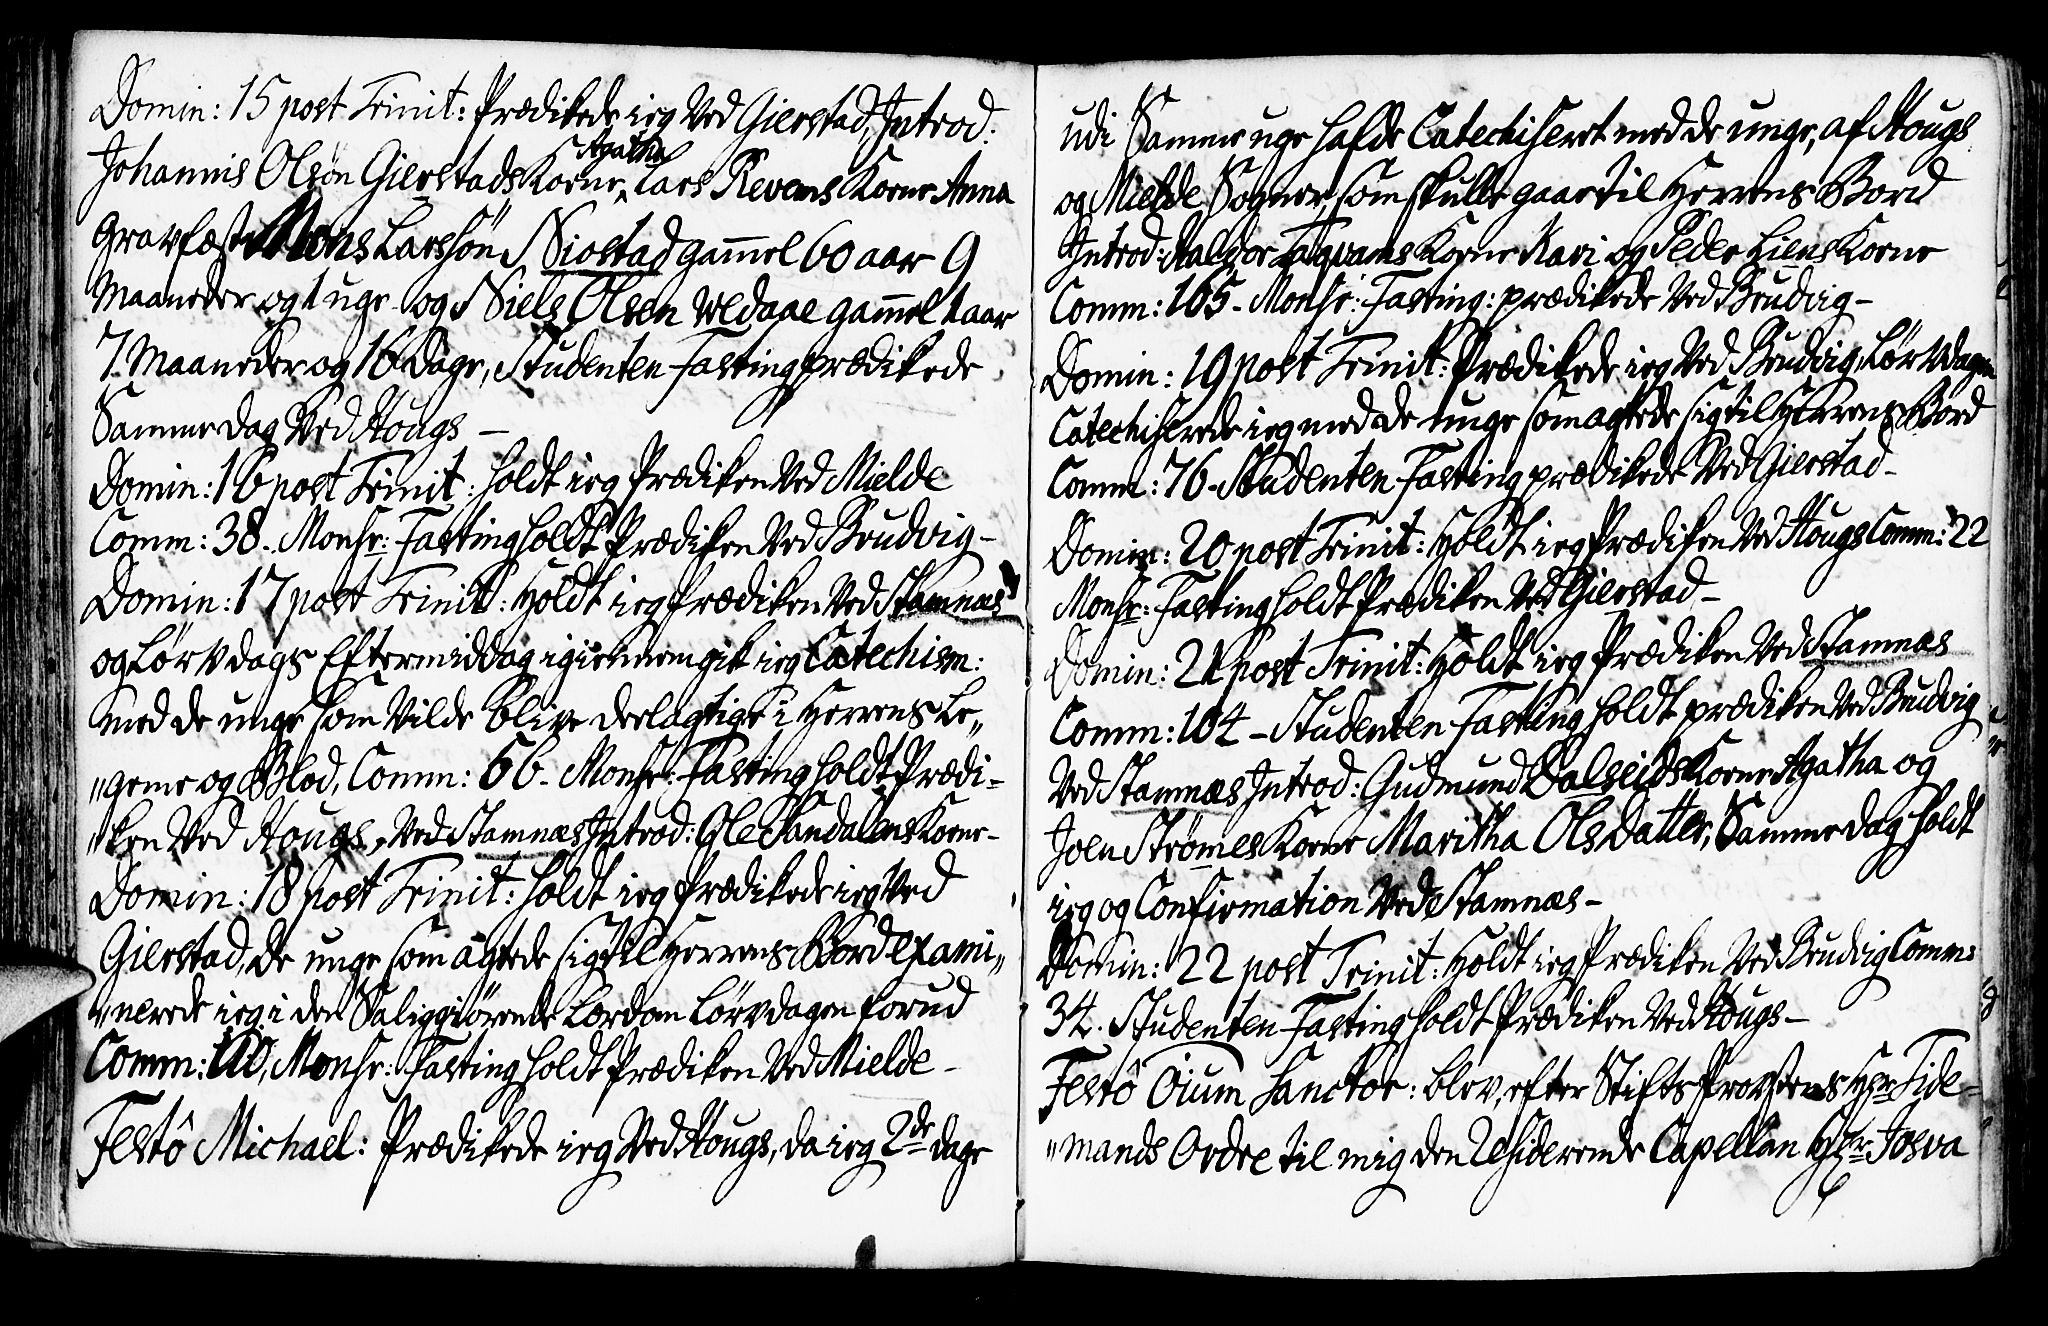 Domin: 15 post Trinit: Prædikede ieg Ved Gierstad, Introd:
Johannis Olsøn Gierstads Kone, Agatha Lars Revens Kone Anna
Gravfæste Mons Larssøn Niostad gam̄el 60 aar 9
Maaneder og 1 uge og Niels Olsen Wedaae gam̄el 1 aar
7 Maaneder og 16 Dage, Studenten Fasting prædikede
Samme dag Ved Hougs –
Domin: 16 post Trinit: holdt ieg Prædiken Ved Mielde
Comm: 38. Monsr: Fasting holdt Prædiken Ved Brudvig –
Domin: 17 post Trinit: Holdt ieg Prædiken Ved Stamnæs
og Lørvdags Eftermiddag igiennemgik ieg Catechism:
med de unge som Vilde blive deelagtige i Herrens Le„
„geme og Blod, Comm: 66 – Monsr: Fasting holdt Prædi-
„ken Ved Hougs, Ved Stamnæs Introd: Ole Sandalens Kone –
Domin: 18 post Trinit: holdt ieg Prædikede ieg Ved
Gierstad, de unge som agtede sig til Herrens Bord Exami„
„nerede ieg i den Saliggiørende Lærdom Lørvdagen forud
Comm: 110, Monsr: Fasting holdt Prædiken Ved Mielde –
Festô Michael: Prædikede ieg Ved Hougs, da ieg 2de dage
udi Samme uge hafde Catechiseret med de unge, af Hougs
og Mielde Sogner, som skulle gaae til Herrens Bord
Introd: Kone Kari og Peder Liens Kone
Comm: 165 – Monsr: Fasting: prædikede Ved Brudvig –
Domin: 19 post Trinit: Prædikede ieg Ved Brudvig, Lørvdagen
Catechiserede ieg med de unge som agtede sig til Herrens Bord
Comm: 76 – Studenten Fasting prædikede Ved Gierstad –
Domin: 20 post Trinit: Holdt ieg Prædiken Ved Hougs Comm: 22
Monsr: Fasting holdt Prædiken Ved Gierstad –
Domin: 21 post Trinit: Holdt ieg Prædiken Ved Stamnæs
Comm: 104 – Studenten Fasting holdt prædiken Ved Brudvig
Ved Stamnæs Introd: Gudmund Dalseids Kone Agatha og
Joen Strømes Kone Maritha Olsdatter, Samme dag holdt
ieg og Confirmation Ved Stamnæs –
Domin: 22 post Trinit: Holdt ieg Prædiken Ved Brudvig Comm:
34. Studenten Fasting holdt Prædiken Ved Hougs –
Festô Oium Sanctor: blev, efter Stifts Provstens Hr: Tide-
„mands Ordre til mig den Residerende Capellan Hr: Josva